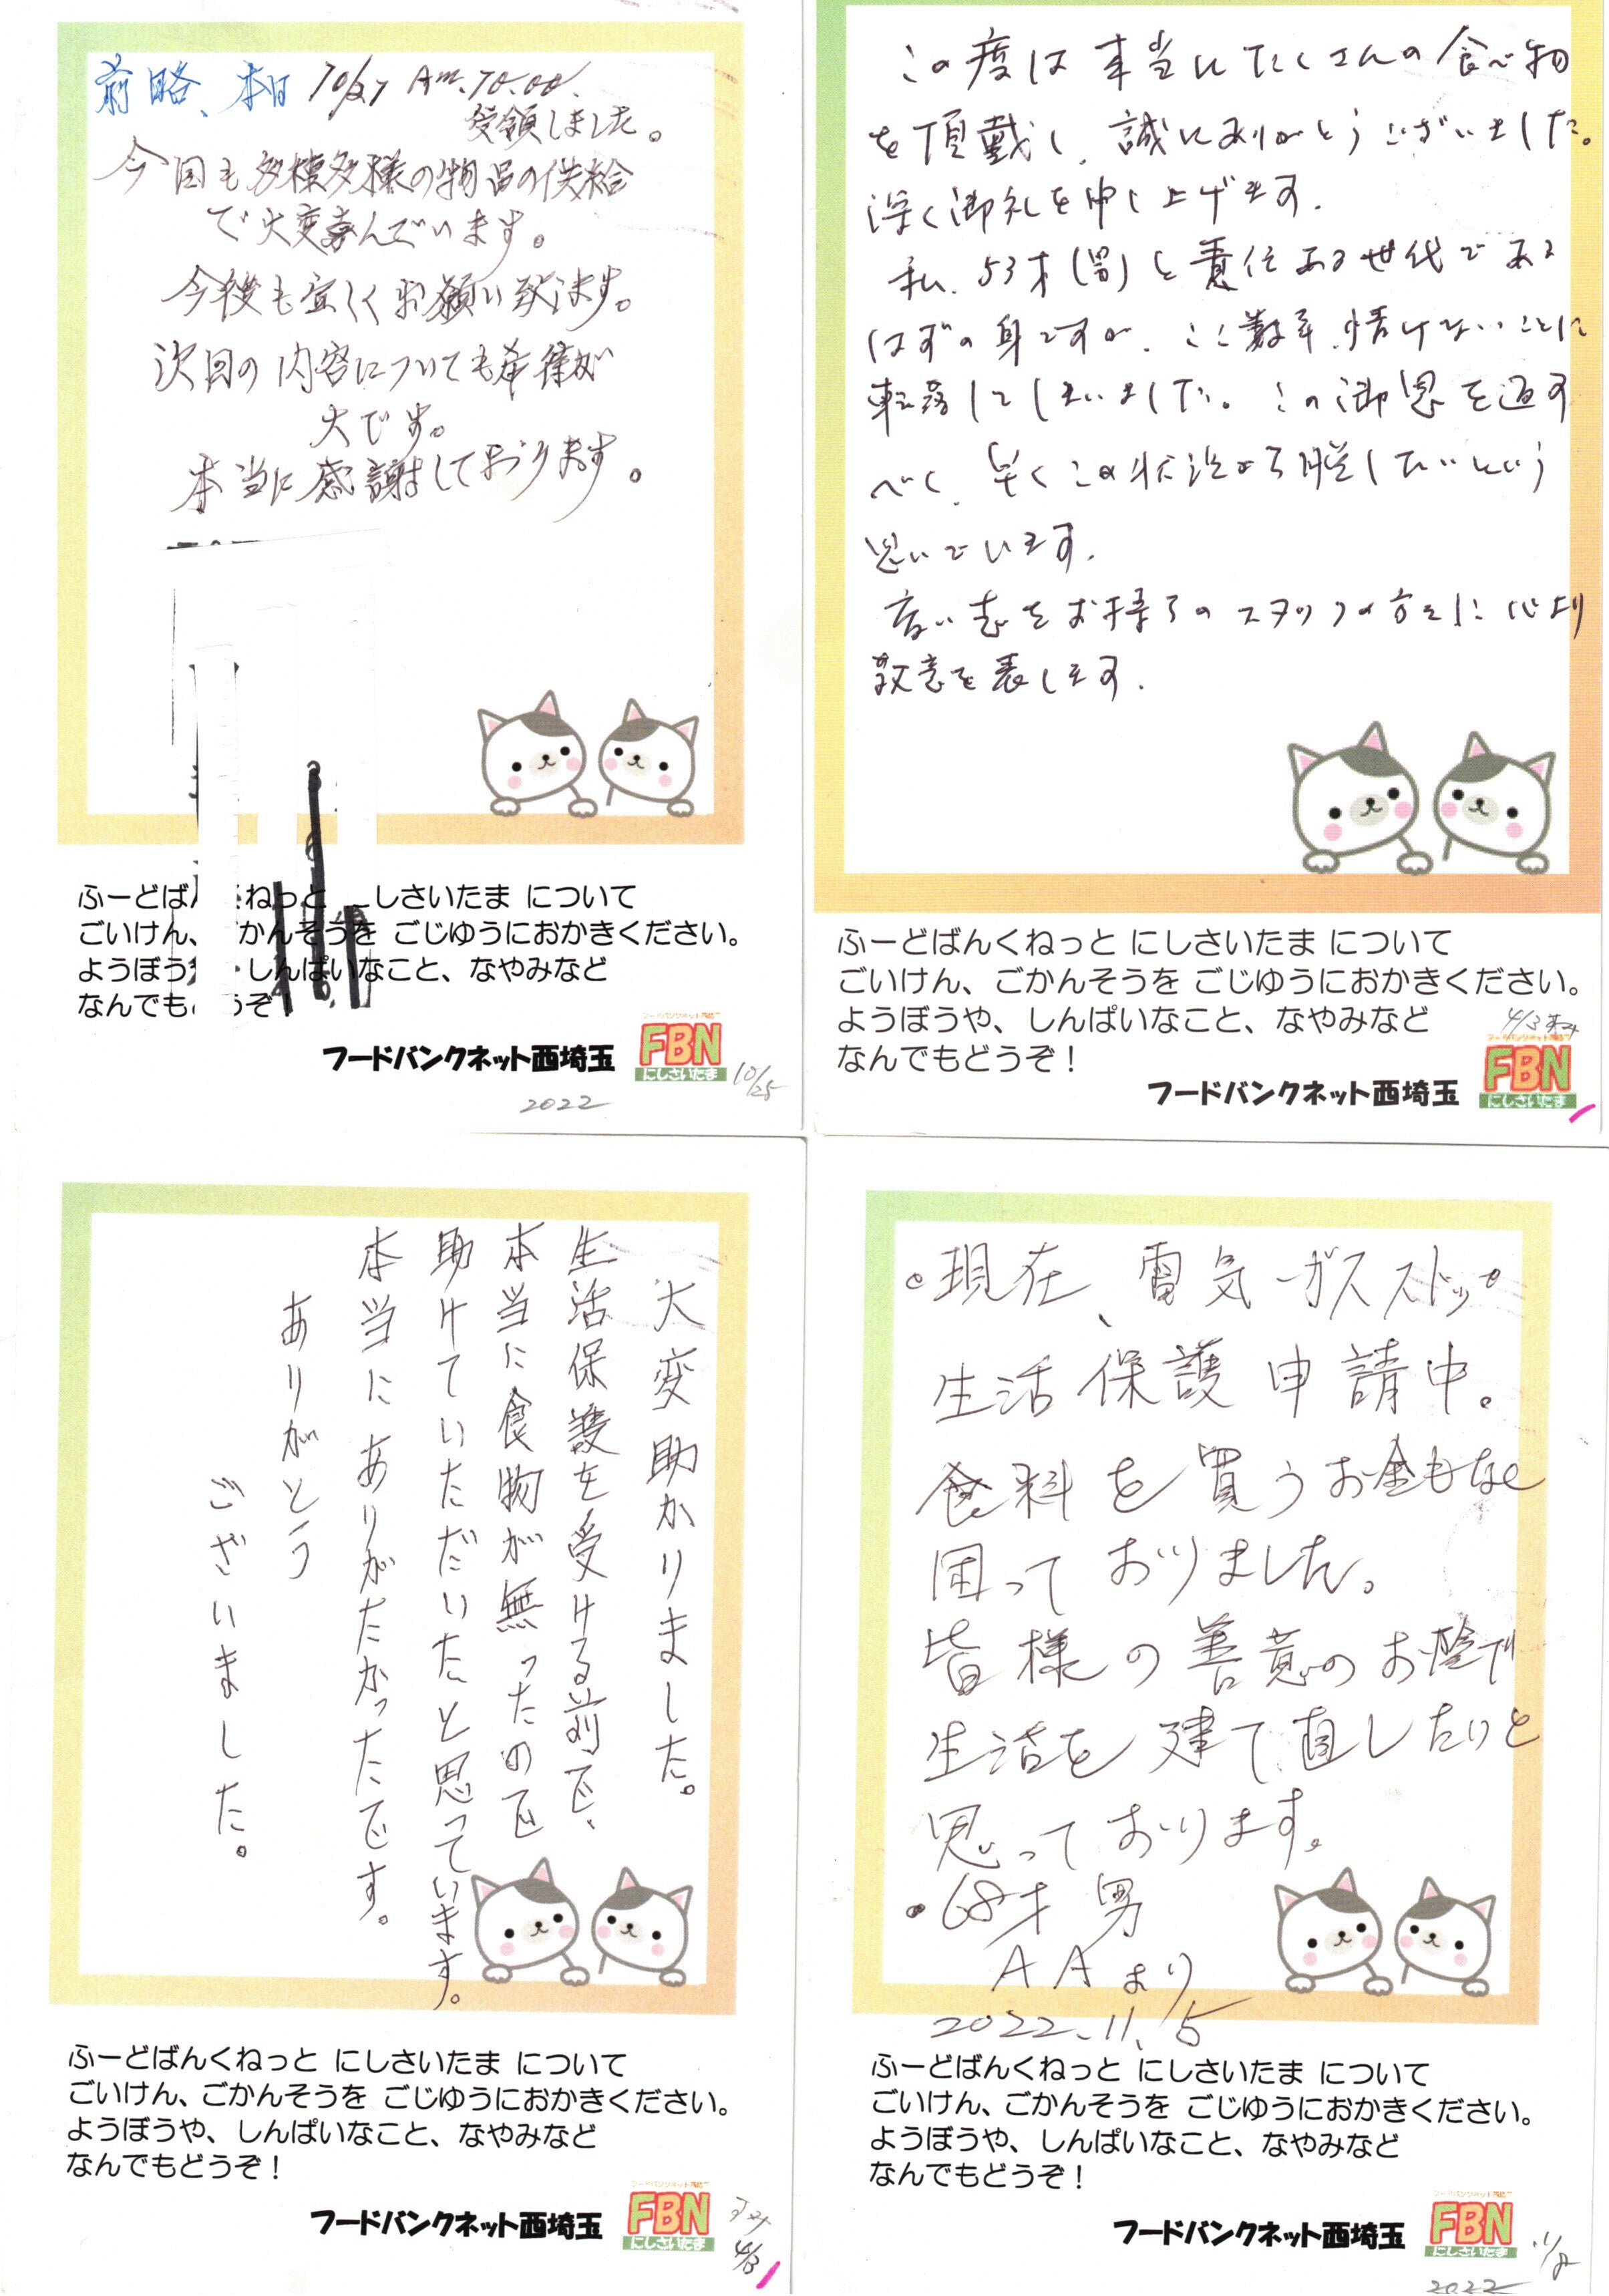 前略、本日 10/27 Am.10.00.
受領しました。
今回も多種多様の物品の供給
で大変喜んでいます。
今後も宜しくお願い致します。
次回の内容についても期待が
大です。
本当に感謝しております。
ふーどば ねっと しさいたま について
ごいけん、 かんそうを ごじゆうにおかきください。
ようぼう しんぱいなこと、なやみなど
なんでも うぞ
フードバンクネット西埼玉
FBN
にしさいたま
10/25
2022
この度は本当にたくさんの食べ物
を頂戴し、誠にありがとうございました。
深く御礼を申し上げます。
私、53才(男)と責任ある世代である
はずの身ですが、ここ数年、情けないことに
転落してしまいました。この御恩を返す
べく、早くこの状況から脱したいという
思いでいます。
高い志をお持ちのスタッフの方々に心より
敬意を表します。
ふーどばんくねっと にしさいたま について
ごいけん、ごかんそうを ごじゆうにおかきください。
ようぼうや、しんぱいなこと、なやみなど
なんでもどうぞ！
4/3
フードバンクネット西埼玉
FBN
にしさいたま
大変助かりました。
生活保護を受ける前で、
本当に食物が無ったので
助けていただいたと思っています。
本当にありがたかったです。
ありがとう
ございました。
ふーどばんくねっと にしさいたま について
ごいけん、ごかんそうを ごじゆうにおかきください。
ようぼうや、しんぱいなこと、なやみなど
なんでもどうぞ！
フードバンクネット西埼玉
FBN
にしさいたま
4/3
。現在、電気ガスストップ
生活保護申請中。
食料を買うお金もなく
困っておりました。
皆様の善意のお陰で
生活を建て直したいと
思っております。
・68才 男
AAより
2022.11.5
ふーどばんくねっと にしさいたま について
ごいけん、ごかんそうを ごじゆうにおかきください。
ようぼうや、しんぱいなこと、なやみなど
なんでもどうぞ！
フードバンクネット西埼玉
FBN
にしさいたま
2022